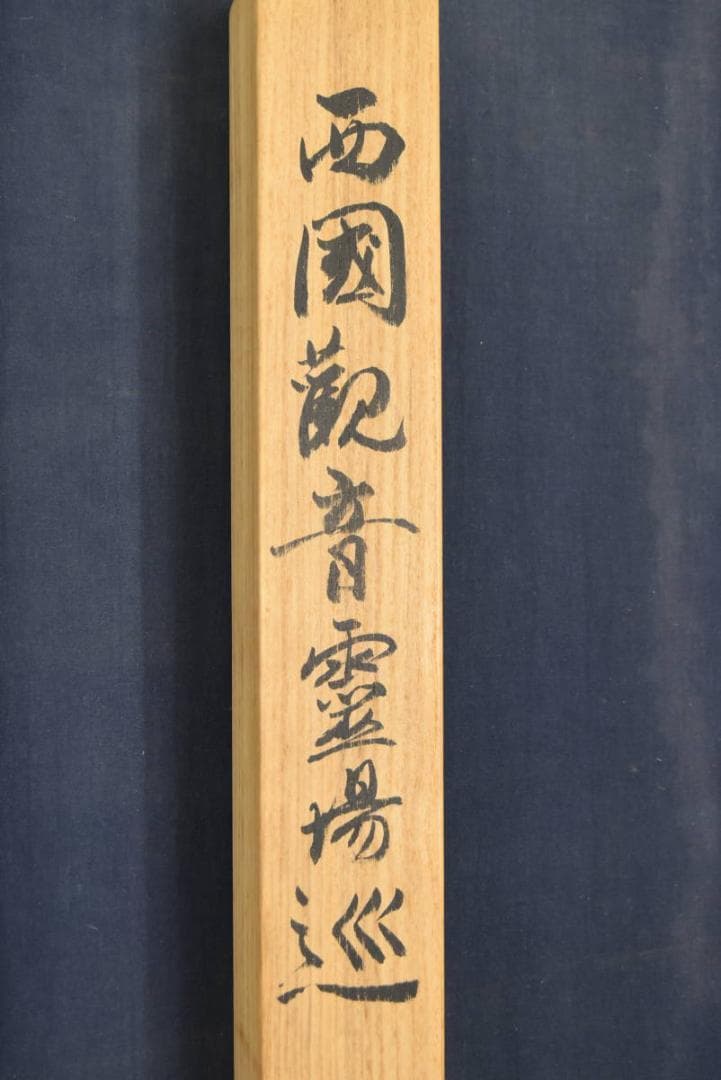 西國觀音靈場巡